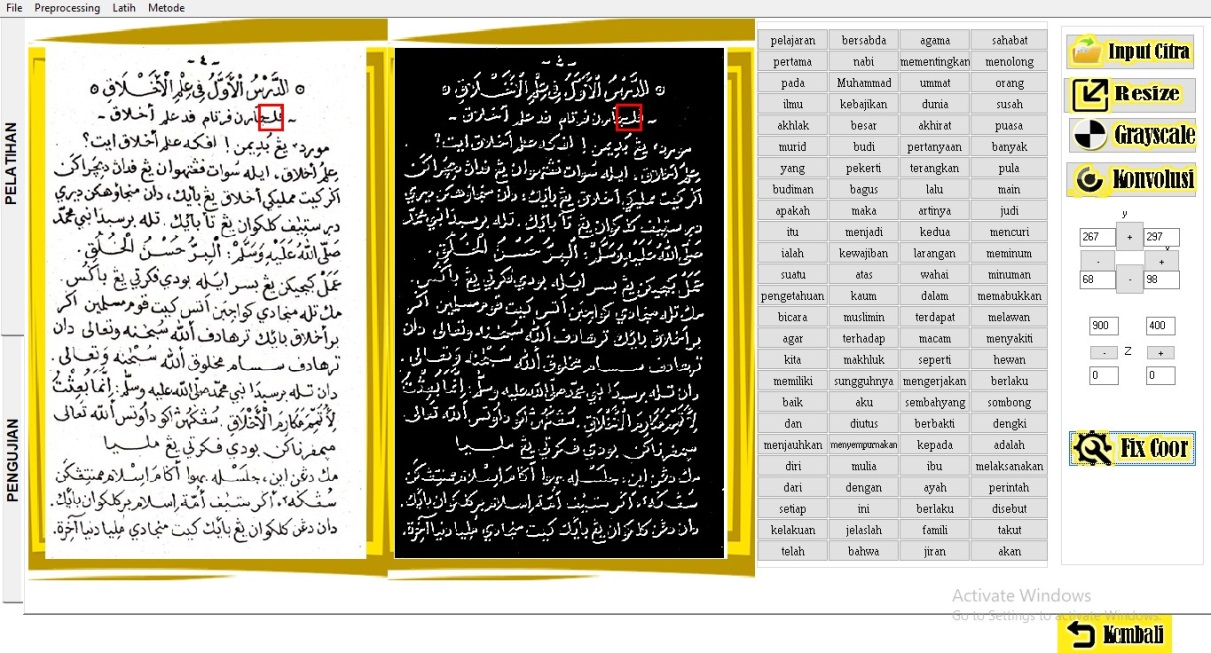 File Preprocessing Latih Metode
PELATIHAN
PENGUJIAN
- ٤ -
الدَّرْسُ الْأَوَّلُ فِي عِلْمِ الْأَخْلَاقِ
- فرتام فد علم أخلاق -
يڠ بديمن ! افكه علم أخلاق ايت؟
علم أخلاق، ايله سوات يڠ
اكر كيت أخلاق يڠ بائيك، دان ديري
دري كلكوان يڠ تا بائيك. تله برسبدا نبي محمد
صَلَّى اللهُ عَلَيْهِ وَسَلَّمَ: أَلْبِرُّ حُسْنُ الْخُلُقِ.
يڠ بسر ايله بودي فكرتي يڠ باكس
مك تله منجادي كواجبن أتس كيت قوم مسلمين اكر
برأخلاق بائيك ترهادف الله سبحنه وتعالى دان
ترهادف مخلوق الله سبحنه وتعالى.
دان تله برسبدا نبي محمد صلى الله عليه وسلم: إِنَّمَا بُعِثْتُ
لِأُتَمِّمَ مَكَارِمَ الْأَخْلَاقِ. اكو داوتس الله تعالى
بودي فكرتي يڠ مليا
مك دڠن اين، أكام إسلام
اكر أمة إسلام بركلكوان بائيك.
دان دڠن كلكوان يڠ بائيك كيت منجادي مليا دنيا آخرة.
- ٤ -
الدَّرْسُ الْأَوَّلُ فِي عِلْمِ الْأَخْلَاقِ
- فرتام فد علم أخلاق -
يڠ بديمن ! افكه علم أخلاق ايت؟
علم أخلاق، ايله سوات يڠ
اكر كيت أخلاق يڠ بائيك، دان ديري
دري كلكوان يڠ تا بائيك. تله برسبدا نبي محمد
صَلَّى اللهُ عَلَيْهِ وَسَلَّمَ: أَلْبِرُّ حُسْنُ الْخُلُقِ.
يڠ بسر ايله بودي فكرتي يڠ باكس
مك تله منجادي كواجبن أتس كيت قوم مسلمين اكر
برأخلاق بائيك ترهادف الله سبحنه وتعالى دان
ترهادف مخلوق الله سبحنه وتعالى.
دان تله برسبدا نبي محمد صلى الله عليه وسلم: إِنَّمَا بُعِثْتُ
لِأُتَمِّمَ مَكَارِمَ الْأَخْلَاقِ. اكو داوتس الله تعالى
بودي فكرتي يڠ مليا
مك دڠن اين، أكام إسلام
اكر أمة إسلام بركلكوان بائيك.
دان دڠن كلكوان يڠ بائيك كيت منجادي مليا دنيا آخرة.
pelajaran bersabda agama sahabat
pertama nabi mementingkan menolong
pada Muhammad ummat orang
ilmu kebajikan dunia susah
akhlak besar akhirat puasa
murid budi pertanyaan banyak
yang pekerti terangkan pula
budiman bagus lalu main
apakah maka artinya judi
itu menjadi kedua mencuri
ialah kewajiban larangan meminum
suatu atas wahai minuman
pengetahuan kaum dalam memabukkan
bicara muslimin terdapat melawan
agar terhadap macam menyakiti
kita makhluk seperti hewan
memiliki sungguhnya mengerjakan berlaku
baik aku sembahyang sombong
dan diutus berbakti dengki
menjauhkan menyempurnakan kepada adalah
diri mulia ibu melaksanakan
dari dengan ayah perintah
setiap ini berlaku disebut
kelakuan jelaslah famili takut
telah bahwa jiran akan
Input Citra
Resize
Grayscale
Konvolusi
y
267 + 297
- +
68 - 98
900 400
- Z +
0 0
Fix Coor
Activate Windows
Go to Settings to activate Windows.
Kembali